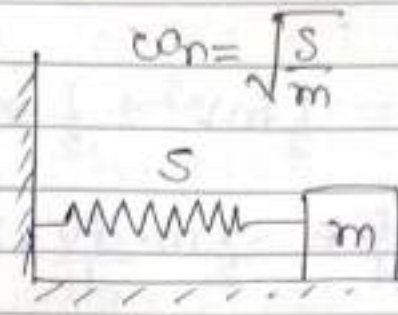 ωn = √(S/m)
S
m